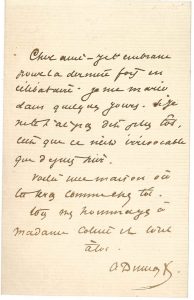 Cher ami - je t'embrasse
pour la dernière fois en
célibataire. Je me marie
dans quelques jours. Si je
ne te l'ai pas dit plus tôt,
c'est que ce n'est irrévocable
que depuis hier.
Voilà une maison où
tu seras comme chez toi.
tous mes hommages à
madame et
à toi.
A Dumas